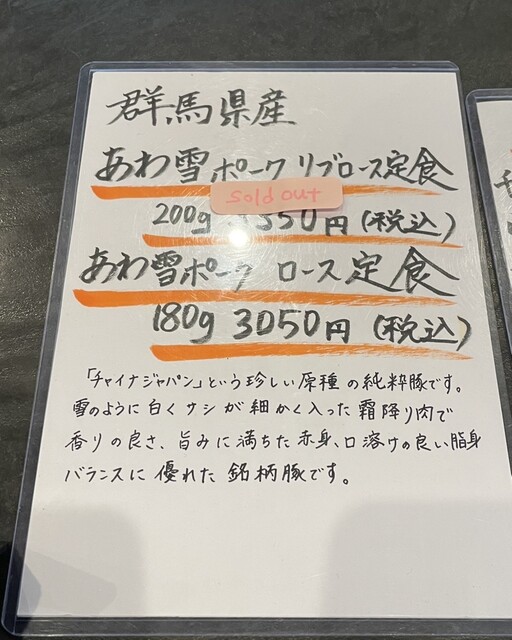 群馬県産
あわ雪ポーク リブロース定食
sold out
200g 3350円(税込)
あわ雪ポーク ロース定食
180g 3050円(税込)
「チャイナジャパン」という珍しい原種の純粋豚です。
雪のように白くサシが細かく入った霜降り肉で
香りの良さ、旨みに満ちた赤身、口溶けの良い脂身
バランスに優れた銘柄豚です。